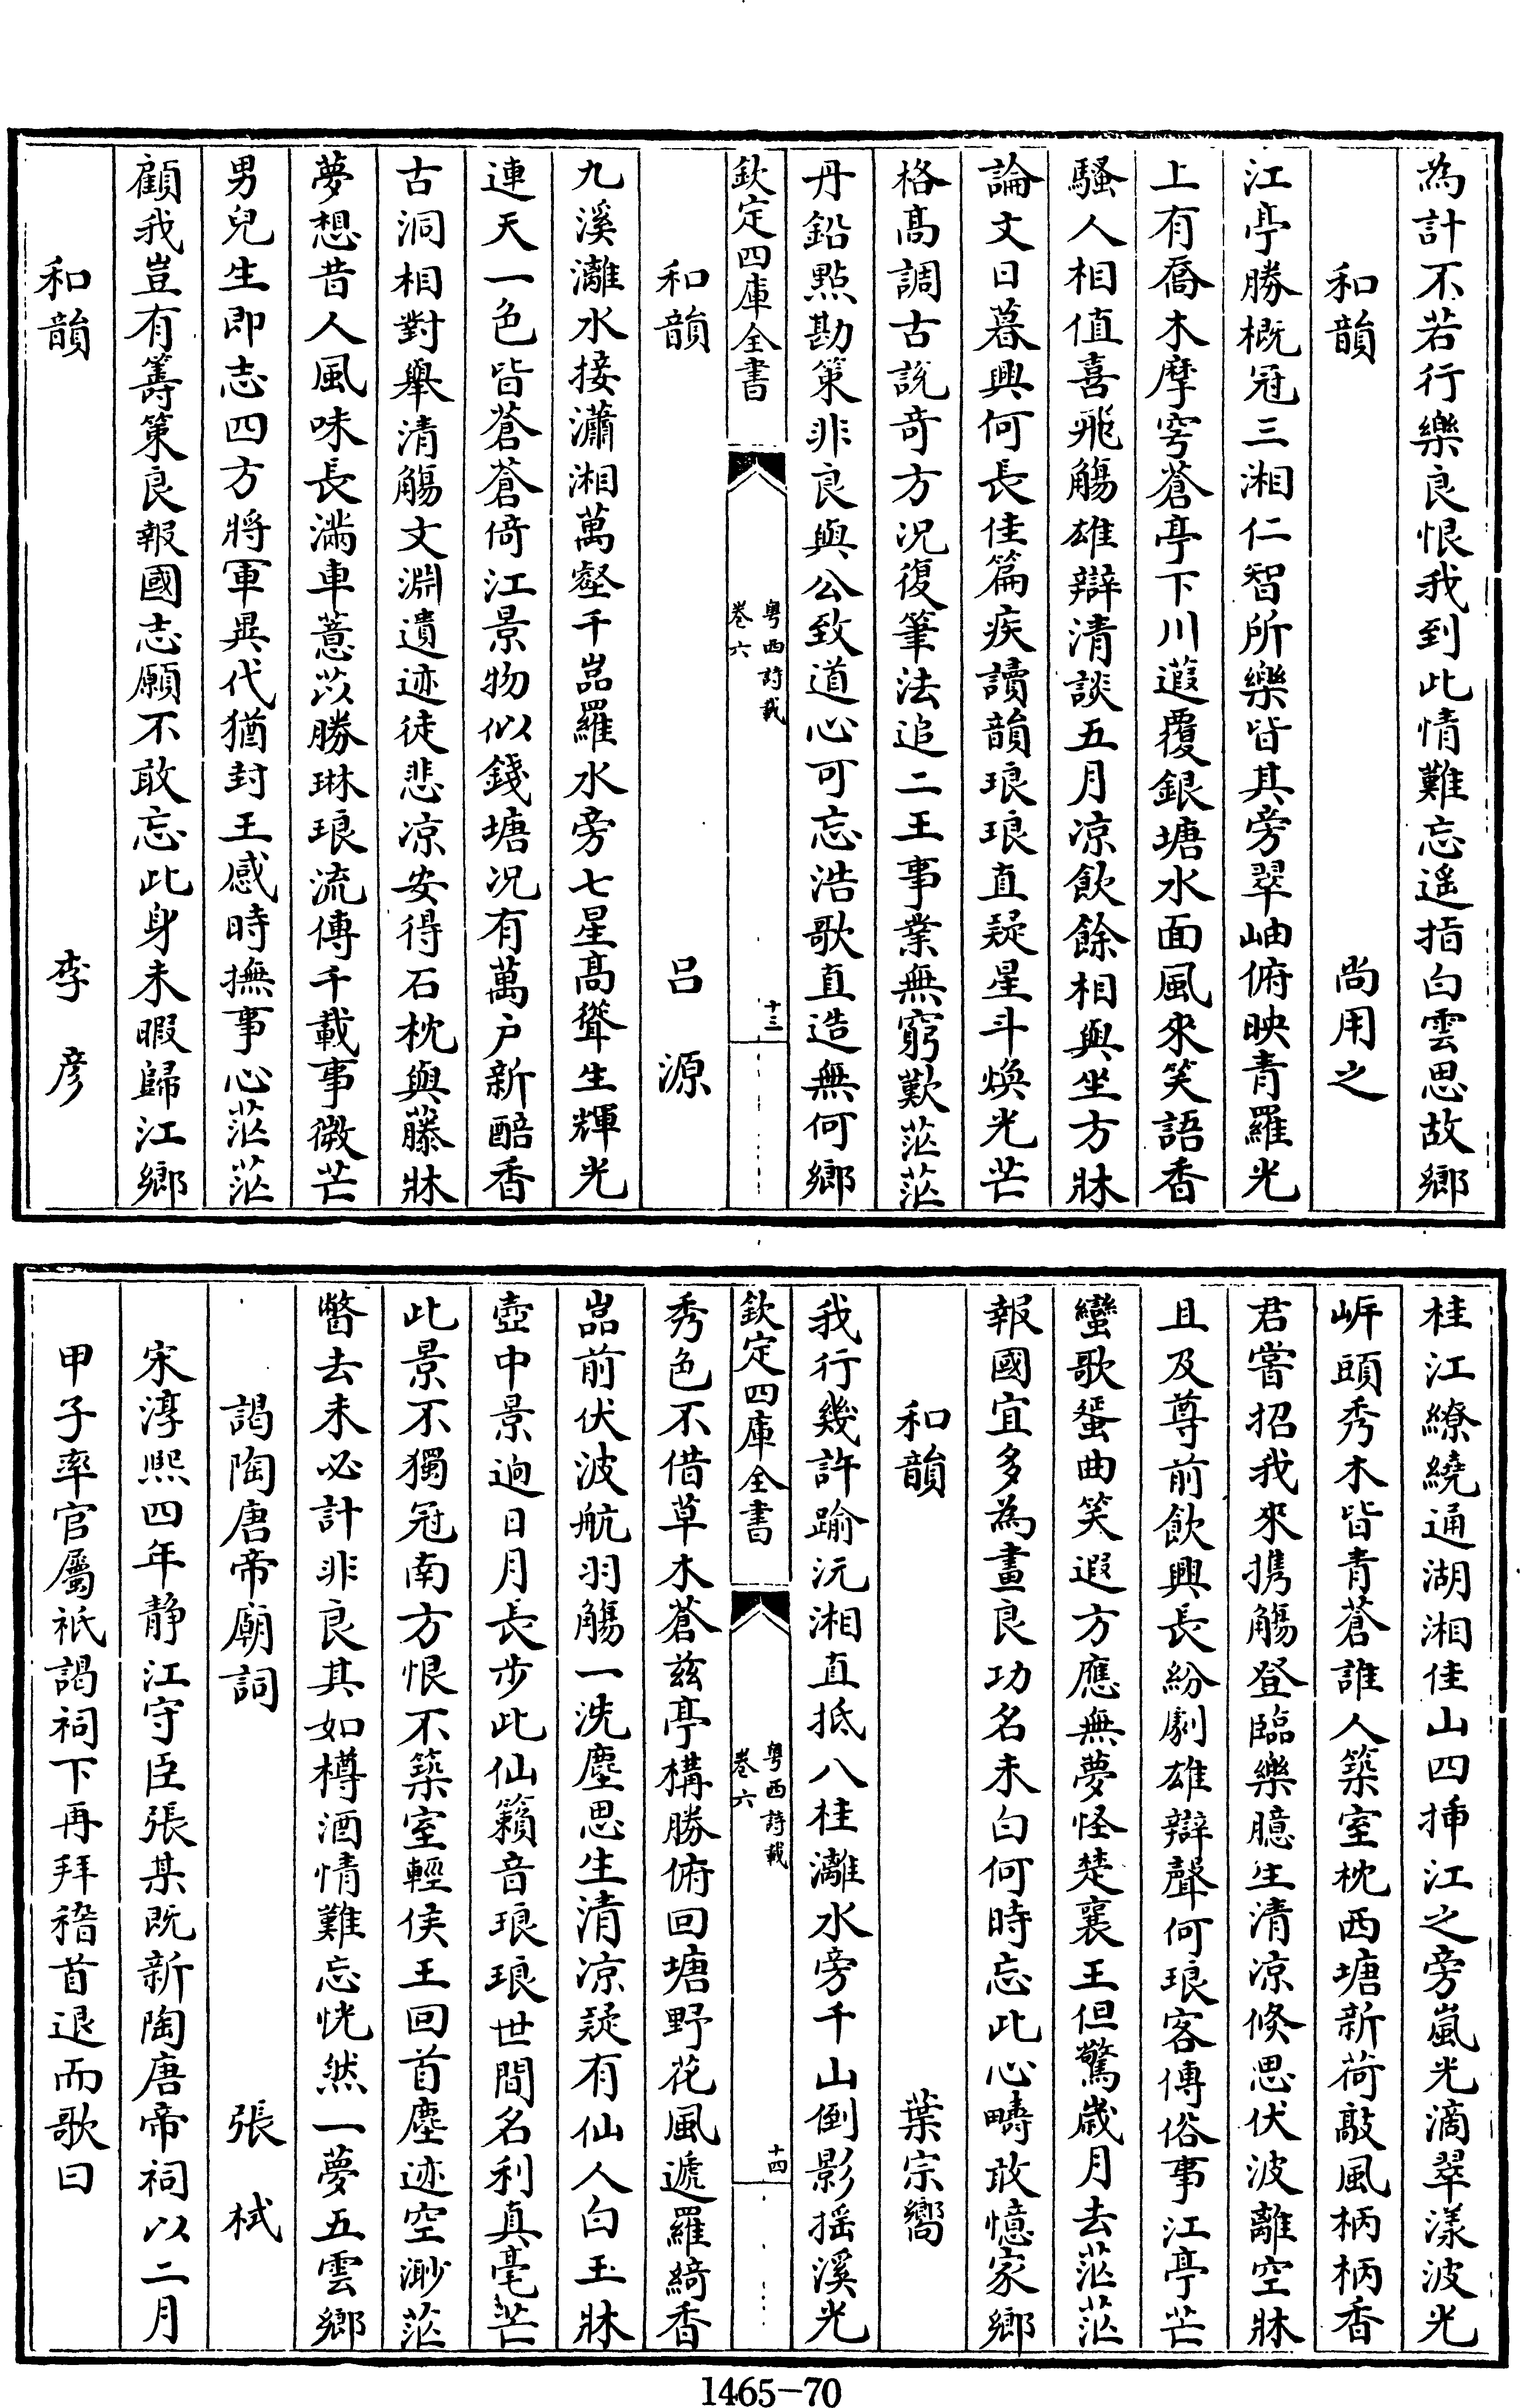 為計不若行樂良恨我到此情難忘遥指白雲思故鄉
和韻　尚用之
江亭勝概冠三湘仁智所樂皆其旁翠岫俯映青羅光
上有喬木摩穹蒼亭下川遐覆銀塘水面風來笑語香
騷人相值喜飛觴雄辯清談五月凉飲餘相與坐方牀
論文日暮興何長佳篇疾讀韻琅琅直疑星斗煥光芒
格高調古説奇方况復筆法追二王事業無窮歎茫茫
丹鉛㸃勘策非良與公致道心可忘浩歌直造無何鄉
欽定四庫全書　粤西詩載　卷六　十三
和韻　吕源
九溪灕水接瀟湘萬壑千嵓羅水旁七星高聳生輝光
連天一色皆蒼蒼倚江景物似錢塘况有萬户新醅香
古洞相對舉清觴文淵遺迹徒悲凉安得石枕與藤牀
夢想昔人風味長滿車薏苡勝琳琅流傳千載事微芒
男兒生即志四方將軍異代猶封王感時撫事心茫茫
顧我豈有籌策良報國志願不敢忘此身未暇歸江鄉
和韻　李彦
桂江繚繞通湖湘佳山四揷江之旁嵐光滴翠漾波光
㟁頭秀木皆青蒼誰人築室枕西塘新荷敲風柄柄香
君嘗招我來携觴登臨樂臆生清凉倐思伏波離空牀
且及尊前飲興長紛劇雄辯聲何琅客傳俗事江亭芒
蠻歌蜑曲笑遐方應無夢怪楚襄王但驚歲月去茫茫
報國宜多為畫良功名未白何時忘此心疇敢憶家鄉
和韻　葉宗嚮
我行幾許踰沅湘直抵八桂灕水旁千山倒影揺溪光
欽定四庫全書　粤西詩載　卷六　十四
秀色不借草木蒼兹亭構勝俯回塘野花風遞羅綺香
嵓前伏波航羽觴一洗塵思生清凉疑有仙人白玉牀
壺中景逈日月長步此仙籟音琅琅世間名利真毫芒
此景不獨冠南方恨不築室輕侯王回首塵迹空渺茫
瞥去未必計非良其如樽酒情難忘恍然一夢五雲鄉
謁陶唐帝廟詞　張栻
宋淳熙四年静江守臣張某既新陶唐帝祠以二月
甲子率官屬祇謁祠下再拜稽首退而歌曰
1465-70